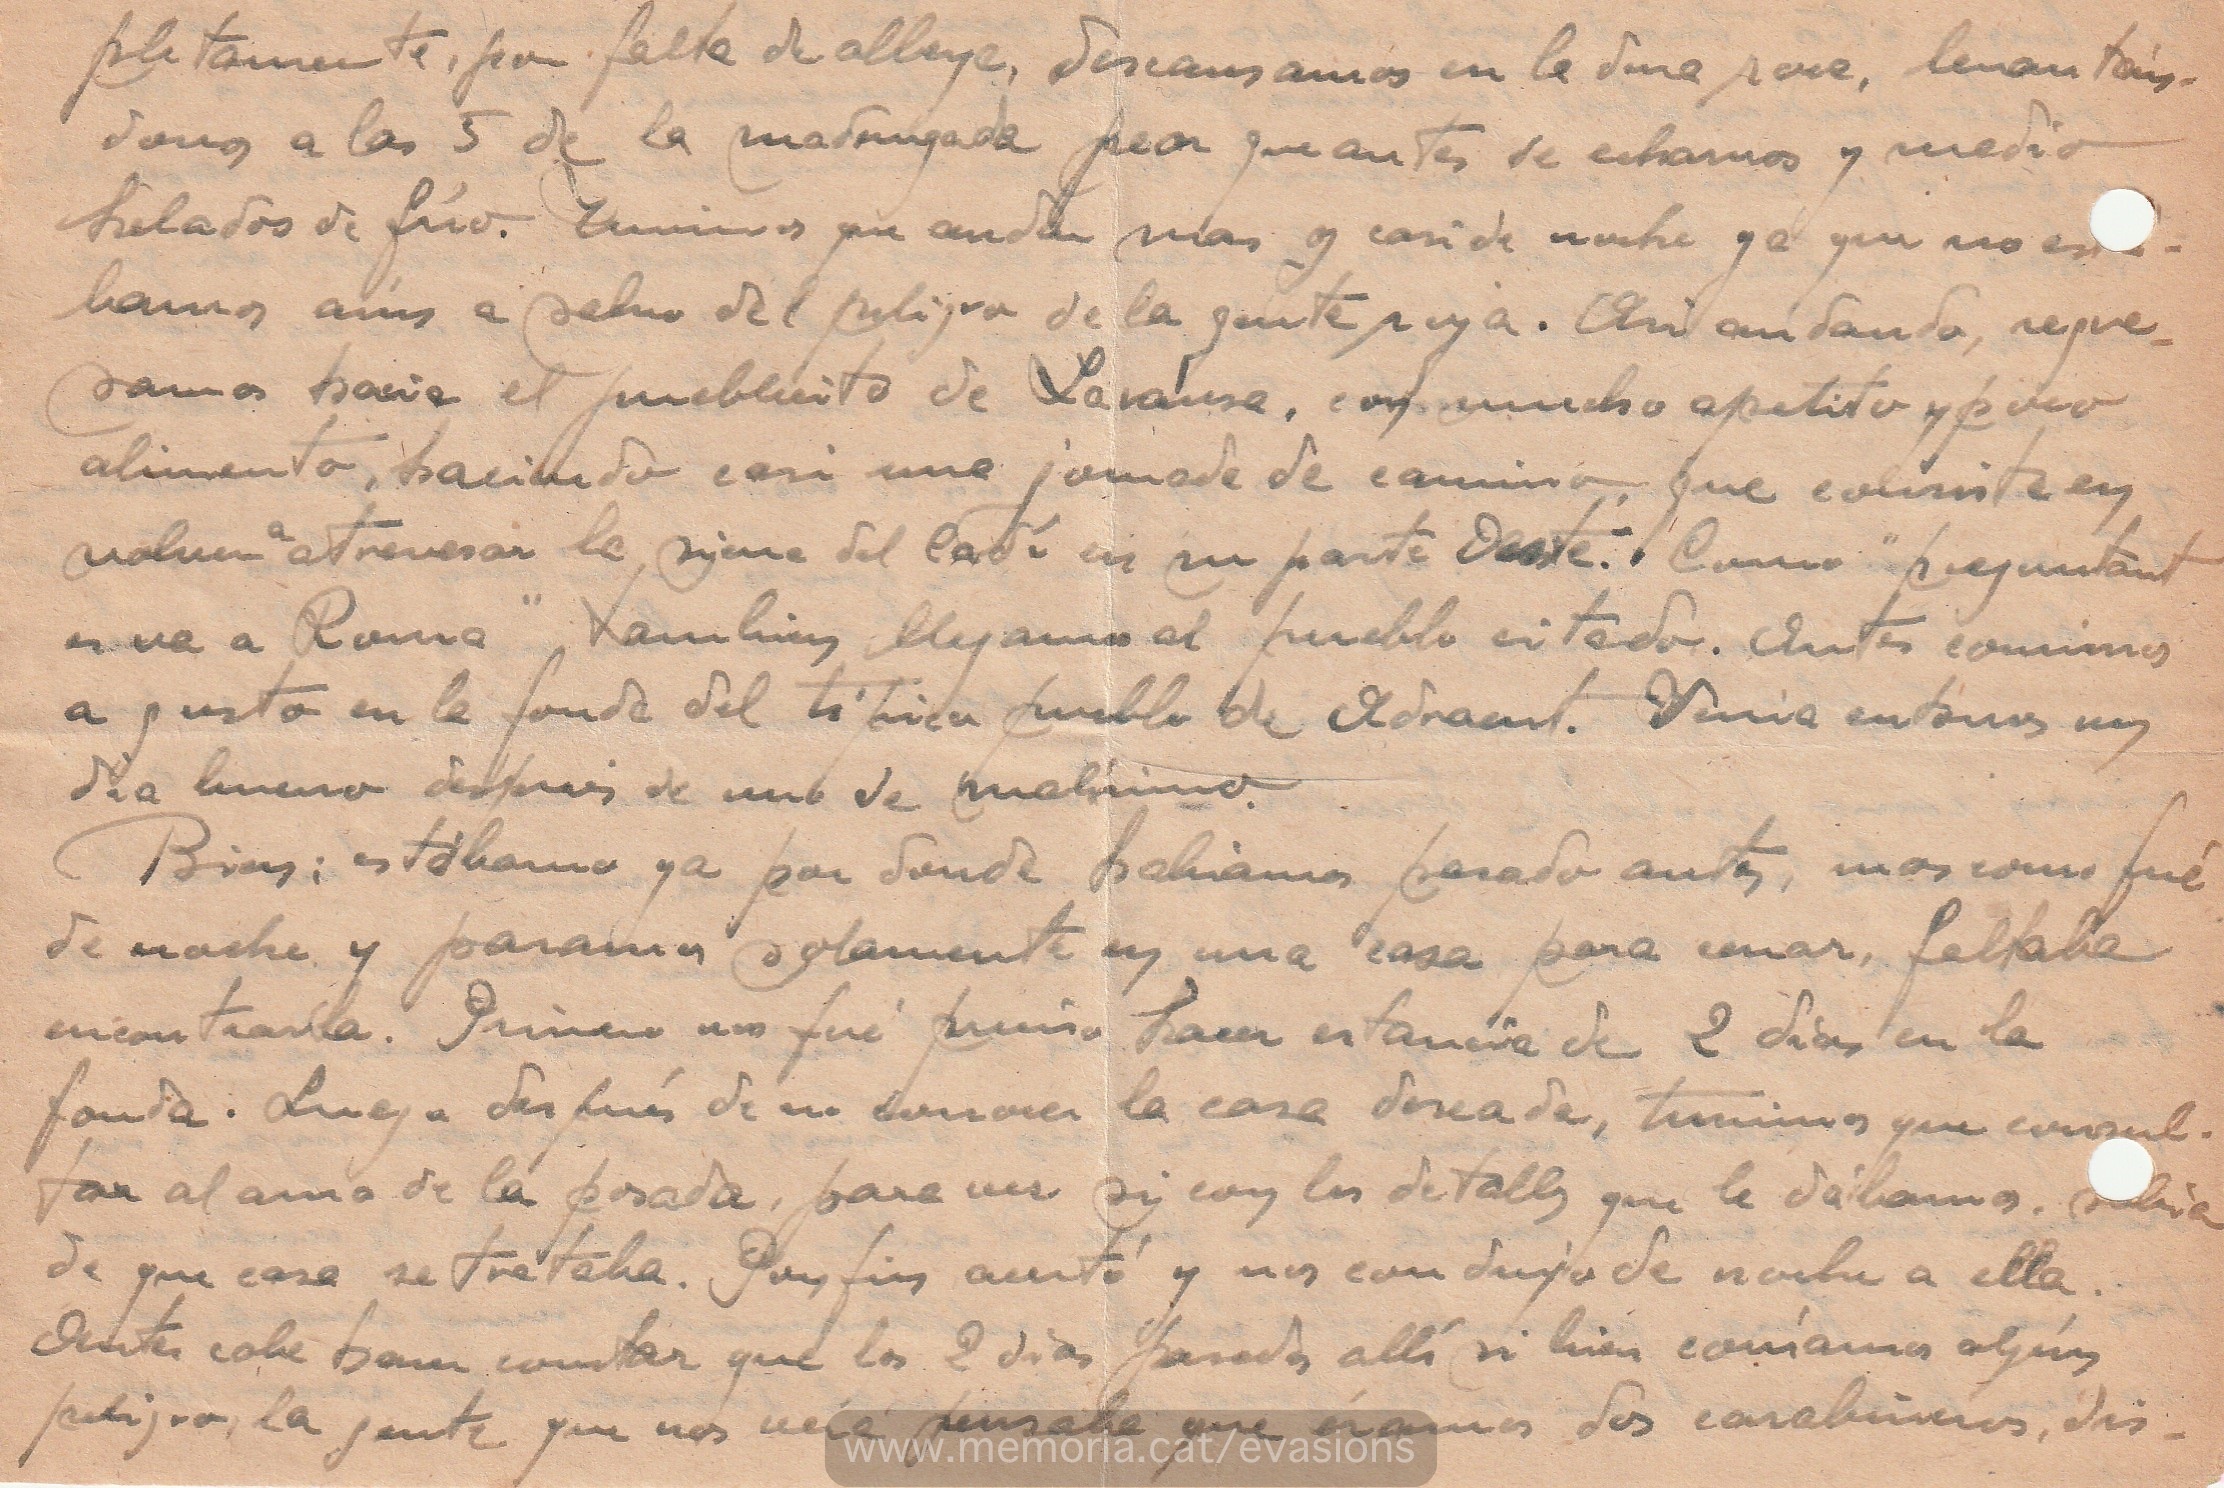 pletamente, por falta de alberge, descansamos en la dura roca, levantán-
donos a las 5 de la madrugada peor que antes de echarnos y medio
helados de frío. Tuvimos que andar mas y casi de noche ya que no está-
bamos aún a salvo del peligro de la gente roja. Asi andando, regre-
samos hacia el pueblecito de Lavansa, con mucho apetito y poco
alimento, haciendo casi una jornada de camino, que consiste en
volver a atravesar la sierra del Cadí en su parte Oeste. Como "preguntant
es va a Roma" tambien llegamos al pueblo citado. Antes comimos
a gusto en la fonda del típico pueblo de Adraent. Venia entonces un
dia bueno despues de uno de malísimo.
Bien; estábamo ya por donde habiamos pasado antes, mas como fué
de noche y paramos solamente en una casa para cenar, faltaba
encontrarla. Primero nos fué preciso hacer estancia de 2 dias en la
fonda. Luego después de no conocer la casa deseada, tuvimos que consul-
tar al amo de la posada, para ver si con los detalles que le dábamos. sabia
de que casa se trataba. Por fin acertó y nos condujo de noche a ella.
Antes cabe hacer constar que los 2 dias pasados allí si bien corríamos algún
peligro, la gente que nos veia pensaba que éramos dos carabineros, dis-
www.memoria.cat/evasions